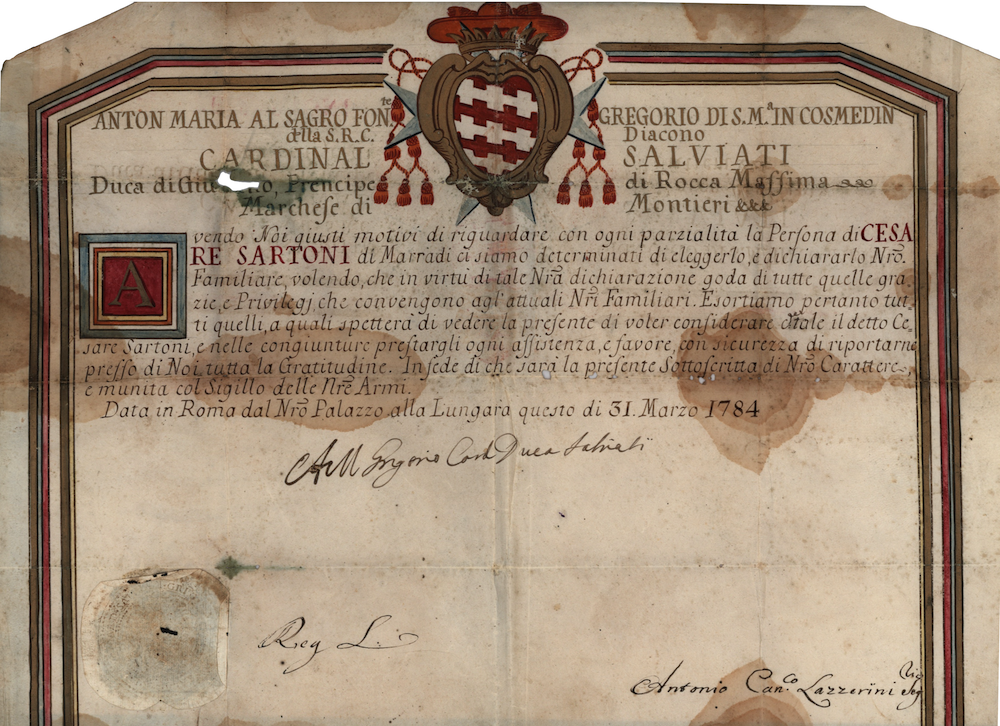 ANTON MARIA AL SAGRO FONte GREGORIO DI S.M.a IN COSMEDIN
della S.R.C. Diacono
CARDINAL SALVIATI
Duca di Giu no, Prencipe di Rocca Massima
Marchese di Montieri &&&
Avendo Noi giusti motivi di riguardare con ogni parzialità la Persona di CESA
RE SARTONI di Marradi ci siamo determinati di eleggerlo, e dichiararlo Nrõ
Familiare, volendo, che in virtù di tale Nrã dichiarazione goda di tutte quelle gra
zie, e Privilegj che convengono agl'attuali Nrĩ Familiari. Esortiamo pertanto tut
ti quelli, a quali spetterà di vedere la presente di voler considerare tale il detto Ce
sare Sartoni, e nelle congiunture prestargli ogni assistenza, e favore, con sicurezza di riportarne
presso di Noi tutta la Gratitudine. In fede di che sarà la presente Sottoscritta di Nrõ Carattere,
e munita col Sigillo delle Nrẽ Armi.
Data in Roma dal Nrõ Palazzo alla Lungara questo di 31. Marzo 1784
AM Gregorio Card Duca Salviati
Reg L.
Antonio Can.co Lazzerini Seg